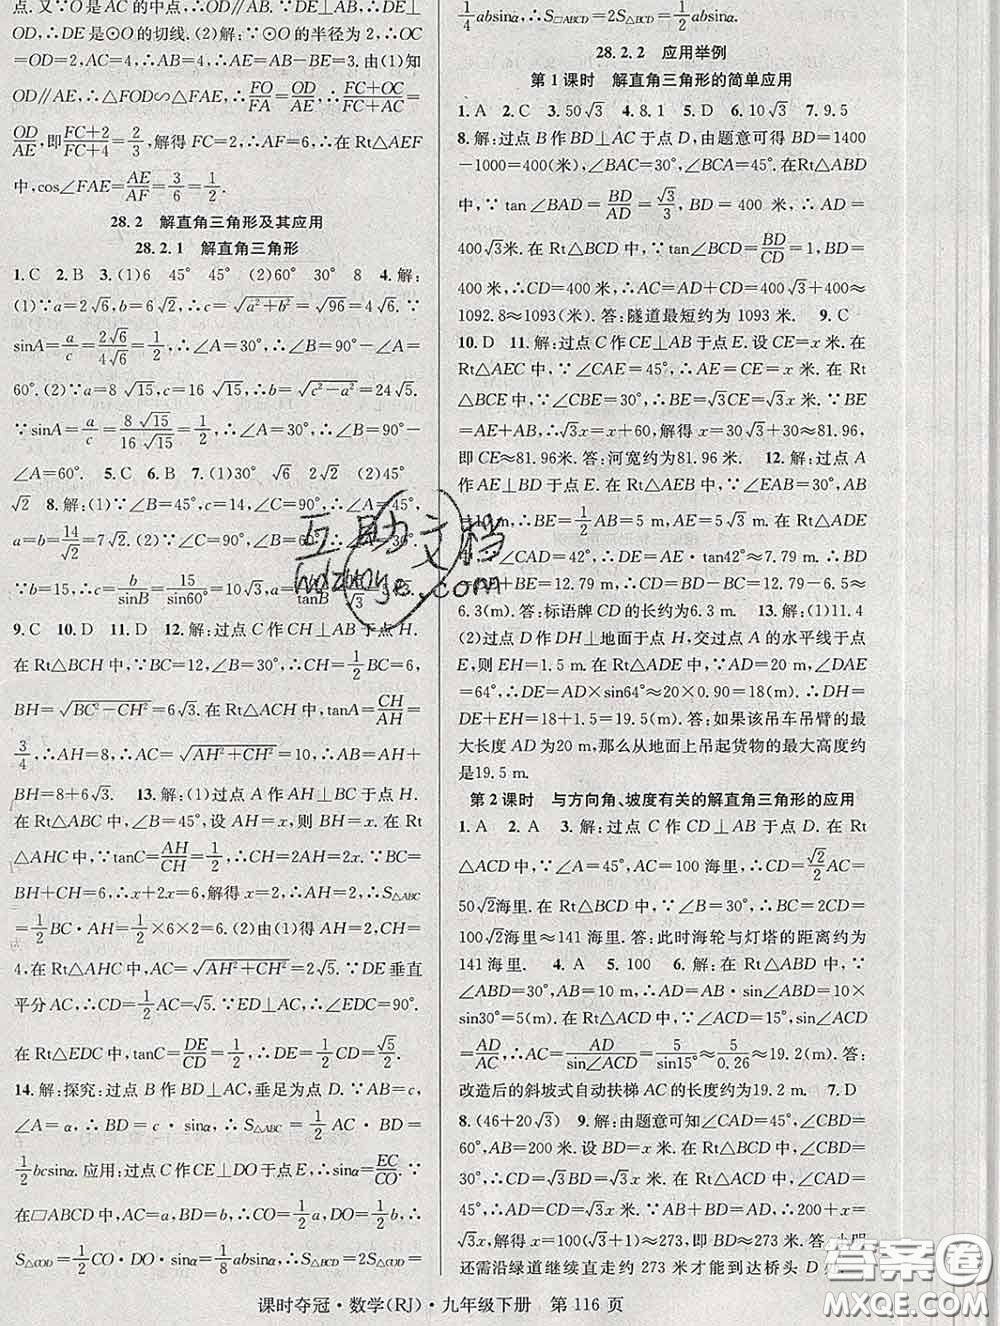 点.又∵O是AC的中点,∴OD∥AE.∵DE⊥AE,∴DE⊥
OD,∴DE是⊙O的切线.(2)解:∵⊙O的半径为2,∴OC
=OD=2,AC=4,∴AB=AC=4.∵BE=1,∴AE=3.由(1)知
OD∥AE,∴△FOD∽△FAE,∴FO/FA=OD/AE,∴(FC+OC)/(FC+AC)=
OD/AE,即(FC+2)/(FC+4)=2/3,解得FC=2,∴AF=6,∴在Rt△AEF
中,cos∠FAE=AE/AF=3/6=1/2.
28.2 解直角三角形及其应用
28.2.1 解直角三角形
1.C 2.B 3.(1)6 45° 45° (2)60° 30° 8 4.解:
(1)∵a=2√6,b=6√2,∴c=√(a²+b²)=√96=4√6.∵
sinA=a/c=2√6/4√6=1/2,∴∠A=30°,∴∠B=90°-∠A=
60°.(2)∵a=8√15,c=16√15,∴b=√(c²-a²)=24√5.
∵sinA=a/c=8√15/16√15=1/2,∴∠A=30°,∴∠B=90°-
∠A=60°. 5.C 6.B 7.(1)30° √6 2√2 (2)45°
√2 8.解:(1)∵∠B=45°,c=14,∴∠A=45°,
a=b=14/√2=7√2.(2)∵∠B=60°,
∵b=15,∴c=b/sinB=15/sin60°=
9.C 10.D 11.D 12.解:过点C作CH⊥AB于点H.
在Rt△BCH中,∵∠B=30°,∴CH=1/2BC=6,
BH=√(BC²-CH²)=6√3.在Rt△ACH中,tanA=CH/AH=
3/4,∴AH=8,∴AC=√(AH²+CH²)=10,∴AB=AH+
BH=8+6√3. 13.解:(1)过点A作AH⊥BC于点H.
在Rt△ABC中,∵∠B=45°,设AH=x,则BH=x.在Rt
△AHC中,∵tanC=AH/CH=1/2,∴CH=2AH=2x.∵BC=
BH+CH=6,∴x+2x=6,解得x=2,∴AH=2,∴S△ABC
=1/2BC·AH=1/2×6×2=6.(2)由(1)得AH=2,CH=
4,在Rt△AHC中,AC=√(AH²+CH²)=2√5.∵DE垂直
平分AC,∴CD=1/2AC=√5.∵ED⊥AC,∴∠EDC=90°.
在Rt△EDC中,tanC=DE/CD=1/2,∴DE=1/2CD=√5/2.
14.解:探究:过点B作BD⊥AC,垂足为点D.∵AB=c,
∠A=α,∴BD=c·sinα,∴S△ABC=1/2AC·BD=
1/2bcsinα.应用:过点C作CE⊥DO于点E,∴sinα=EC/CO.∵
在□ABCD中,AC=a,BD=b,∴CO=1/2a,DO=1/2b,∴
S△COD=1/2CO·DO·sinα=1/8absinα,∴S△BCD=2S△COD=
1/4absinα,∴S□ABCD=2S△BCD=1/2absinα.
28.2.2 应用举例
第1课时 解直角三角形的简单应用
1.A 2.C 3.50√3 4.8.1 5.D 6.10√3 7.9.5
8.解:过点B作BD⊥AC于点D,由题意可得BD=1400
-1000=400(米),∠BAC=30°,∠BCA=45°.在Rt△ABD
中,∵tan∠BAD=BD/AD=√3/3,BD=400米,∴AD=
400√3米.在Rt△BCD中,∵tan∠BCD=BD/CD=1,∴CD=
400米,∴AC=AD+CD=400√3+400≈
1092.8≈1093(米).答:隧道最短约为1093米. 9.C
10.D 11.解:过点C作CE⊥AB于点E.设CE=x米.在
Rt△AEC中,∵∠CAE=45°,∴AE=CE=x米.在Rt
△BCE中,∵∠CBE=30°,∴BE=√3CE=√3x米.∵BE=
AE+AB,∴√3x=x+60,解得x=30√3+30≈81.96,
即CE≈81.96米.答:河宽约为81.96米. 12.解:过点
A作AE⊥BD于点E.在Rt△AEB中,∵∠EAB=30°,AB
=10m,∴BE=1/2AB=5m,AE=5√3m.在Rt△ADE
∠CAD=42°,∴DE=AE·tan42°≈7.79m,∴BD
=DE+BE=12.79m,∴CD=BD-BC=12.79-6.5≈
6.3(m).答:标语牌CD的长约为6.3m. 13.解:(1)11.4
(2)过点D作DH⊥地面于点H,交过点A的水平线于点
E,则EH=1.5m.在Rt△ADE中,AD=20m,∠DAE
=64°,∴DE=AD×sin64°≈20×0.90=18(m),∴DH=
DE+EH=18+1.5=19.5(m).答:如果该吊车吊臂的最
大长度AD为20m,那么从地面上吊起货物的最大高度约
是19.5m.
第2课时 与方向角、坡度有关的解直角三角形的应用
1.A 2.A 3.解:过点C作CD⊥AB于点D.在Rt
△ACD中,∵∠A=45°,AC=100海里,∴CD=√2/2AC=
50√2海里.在Rt△BCD中,∵∠B=30°,∴BC=2CD=
100√2海里≈141海里.答:此时海轮与灯塔的距离约为
141海里. 4.A 5.100 6.解:在Rt△ABD中,∵
∠ABD=30°,AB=10m,∴AD=ABsin∠ABD=10×
sin30°=5(m).在Rt△ACD中,∵∠ACD=15°,sin∠ACD=
AD/AC,∴AC=AD/sin∠ACD=5/sin15°≈5/0.26≈19.2(m).答:
改造后的斜坡式自动扶梯AC的长度约为19.2m. 7.D
8.(46+20√3) 9.解:由题意可知∠CAD=45°,∠CBD=
60°,AB=200米.设BD=x米.在Rt△BCD中,∵∠CBD=
60°,∴CD=√3BD=√3x米.在Rt△ACD中,∵∠CAD=
45°,∴AD=CD=√3x米.∵AB+BD=AD,∴200+x=
√3x,解得x=100(√3+1)≈273,即BD≈273米.答:小明
还需沿绿道继续直走约273米才能到达桥头D
课时夺冠·数学(RJ)·九年级下册 第116页
互助文档
hdzuoye.com
答案圈
MXQE.COM